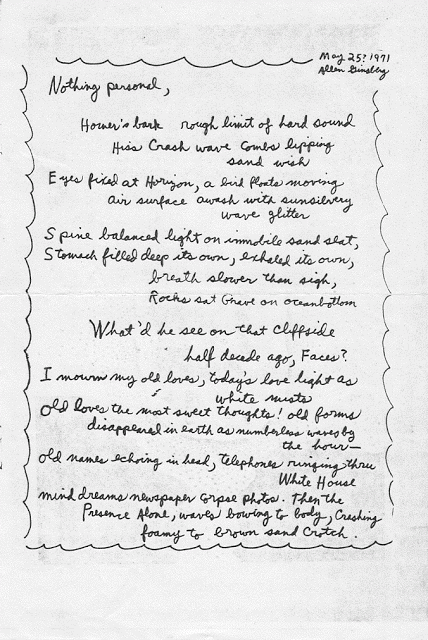 May 25? 1971
Allen Ginsberg
Nothing personal,
Homer's bark rough limit of hard sound
Hiss Crash wave Combs lipping
sand wish
Eyes fixed at Horizon, a bird floats moving
air surface awash with sunsilvery
wave glitter
Spine balanced light on immobile sand seat,
Stomach filled deep its own, exhaled its own,
breath slower than sigh,
Rocks sat Grave on oceanbottom
What'd he see on that Cliffside
half decade ago, Faces?
I mourn my old loves, today's love light as
white mists
Old loves the most sweet thoughts! old forms
disappeared in earth as numberless waves by
the hour—
old names echoing in head, telephones ringing thru
White House
mind dreams newspaper Corpse photos. Then the
Presence Alone, waves bowing to body, Crashing
foamy to brown sand Crotch.